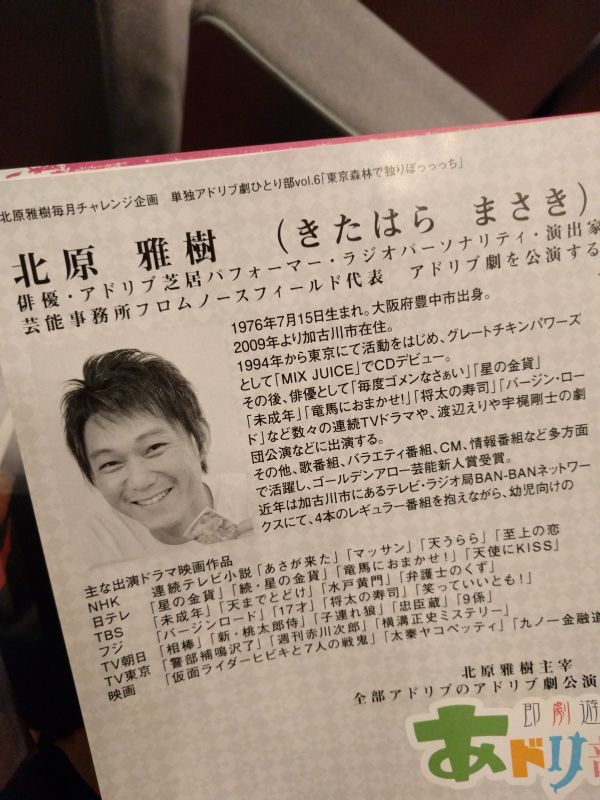 北原雅樹毎月チャレンジ企画　単独アドリブ劇ひとり部vol.6「東京森林で独りぼっっっち」
北原 雅樹 （きたはら まさき）
俳優・アドリブ芝居パフォーマー・ラジオパーソナリティ・演出家
芸能事務所フロムノースフィールド代表　アドリブ劇を公演する
1976年7月15日生まれ。大阪府豊中市出身。
2009年より加古川市在住。
1994年から東京にて活動をはじめ、グレートチキンパワーズ
として「MIX JUICE」でCDデビュー。
その後、俳優として「毎度ゴメンなさぁい」「星の金貨」
「未成年」「竜馬におまかせ!」「将太の寿司」「バージン・ロー
ド」など数々の連続TVドラマや、渡辺えりや宇梶剛士の劇
団公演などに出演する。
その他、歌番組、バラエティ番組、CM、情報番組など多方面
で活躍し、ゴールデンアロー芸能新人賞受賞。
近年は加古川市にあるテレビ・ラジオ局BAN-BANネットワー
クスにて、4本のレギュラー番組を抱えながら、幼児向けの
主な出演ドラマ映画作品
NHK　連続テレビ小説「あさが来た」「マッサン」「天うらら」「至上の恋
日テレ　「星の金貨」「続・星の金貨」「竜馬におまかせ!」「天使にKISS」
TBS　「未成年」「天までとどけ」「水戸黄門」「弁護士のくず」
フジ　「バージンロード」「17才」「将太の寿司」「笑っていいとも!」
TV朝日　「相棒」「新・桃太郎侍」「子連れ狼」「忠臣蔵」「9係」
TV東京　「警部補鳴沢了」「週刊赤川次郎」「横溝正史ミステリー」
映画　「仮面ライダーヒビキと7人の戦鬼」「太秦ヤコペッティ」「九ノ一金融道
北原雅樹主宰
全部アドリブのアドリブ劇公演
即劇遊
あドリ部